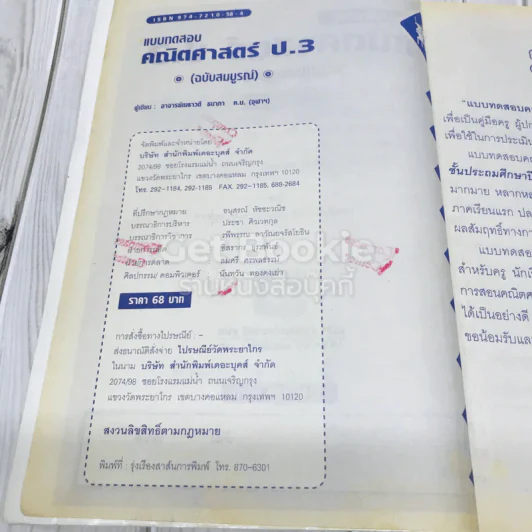 ISBN 974-7210-38-4
แบบทดสอบ
คณิตศาสตร์ ป.3
(ฉบับสมบูรณ์)
ผู้เขียน : อาจารย์
ค.บ. (จุฬาฯ)
จัดพิมพ์และจำหน่ายโดย
บริษัท สำนักพิมพ์เดอะบุคส์ จำกัด
2074/98 ซอยโรงแรมแม่น้ำ ถนนเจริญกรุง
แขวงวัดพระยาไกร เขตบางคอแหลม กรุงเทพฯ 10120
โทร. 292-1184, 292-1185 FAX. 292-1185, 688-2684
ที่ปรึกษากฎหมาย
บรรณาธิการบริหาร ประชา
บรรณาธิการวิชาการ
ศิลปกรรม/คอมพิวเตอร์
GetCookie
ร้านหนังสือบุคกี้
ราคา 68 บาท
การสั่งซื้อทางไปรษณีย์ : -
ส่งธนาณัติสั่งจ่าย ไปรษณีย์วัดพระยาไกร
ในนาม บริษัท สำนักพิมพ์เดอะบุคส์ จำกัด
2074/98 ซอยโรงแรมแม่น้ำ ถนนเจริญกรุง
แขวงวัดพระยาไกร เขตบางคอแหลม กรุงเทพฯ 10120
สงวนลิขสิทธิ์ตามกฎหมาย
พิมพ์ที่ : รุ่งเรืองสาส์นการพิมพ์ โทร. 670-6301
"แบบทดสอบ
เพื่อเป็นคู่มือครู
เพื่อใช้ในการประเมิน
แบบทดสอบ
ชั้นประถมศึกษาปี
มากมาย
ภาคเรียนแรก
ผลสัมฤทธิ์ทางการ
แบบทดสอบ
สำหรับครู
การสอนคณิต
ได้เป็นอย่างดี
ขอน้อมรับ